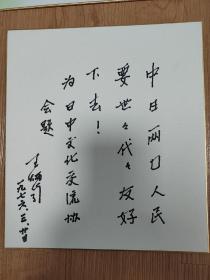 中日两国人民
要世々代々友好
下去！
为日中文化交流协
会题
李炳引
一九七六.三.廿日